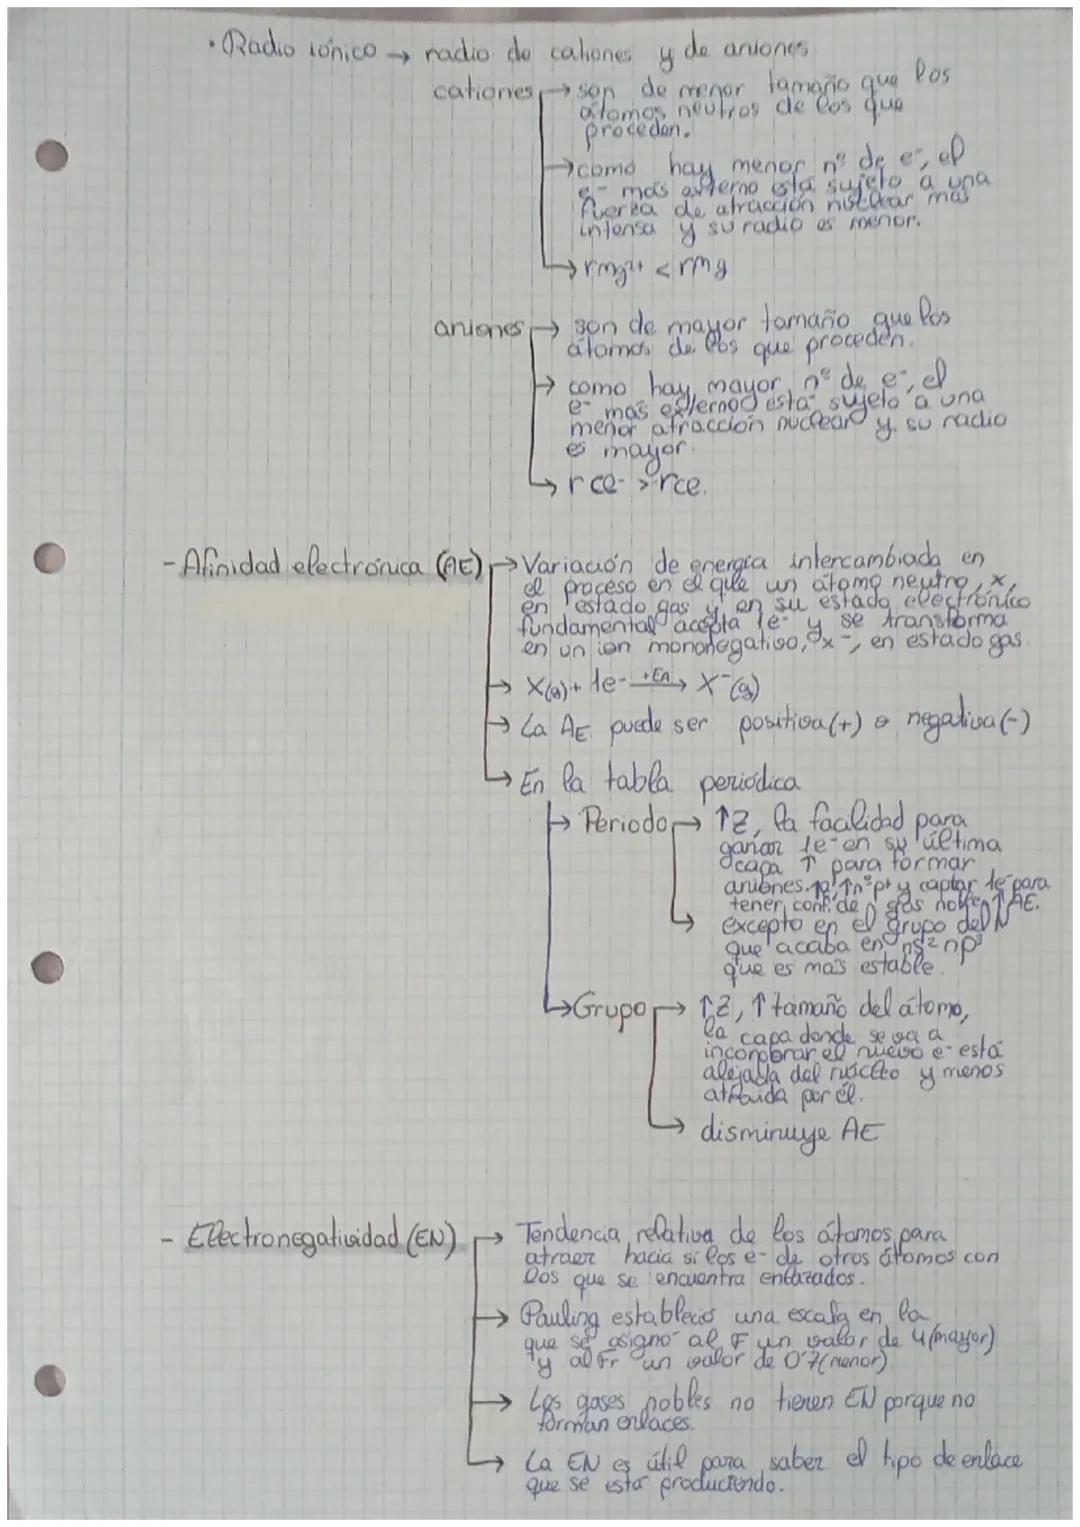 · Radio iónico → radio de cationes y de aniones
cationes → son de menor tamaño que los
átomos neutros de los que
proceden.
→ como hay menor nº de e⁻, el
e⁻ más externo está sujeto a una
fuerza de atracción nuclear más
intensa y su radio es menor.
→ rmg²⁺ < rmg
aniones → son de mayor tamaño que los
átomos de los que proceden.
→ como hay mayor nº de e⁻, el
e⁻ más externo está sujeto a una
menor atracción nuclear y su radio
es mayor.
→ rce⁻ > rce.
- Afinidad electrónica (AE) → Variación de energía intercambiada en
el proceso en el que un átomo neutro, x,
en estado gas y en su estado electrónico
fundamental acepta 1e⁻ y se transforma
en un ion mononegativo, x⁻, en estado gas.
→ X(g) + 1e⁻ +EA→ X⁻(g)
→ La AE puede ser positiva (+) o negativa (-)
→ En la tabla periódica
→ Periodo → ↑Z, la facilidad para
ganar 1e⁻ en su última
capa ↑ para formar
aniones. ↑nº p⁺ y captar 1e⁻ para
tener conf. de gas noble ↑AE.
→ excepto en el grupo del N
que acaba en ns² np³
que es más estable.
→ Grupo → ↑Z, ↑ tamaño del átomo,
la capa donde se va a
incorporar el nuevo e⁻ está
alejada del núcleo y menos
atraída por él.
→ disminuye AE
- Electronegatividad (EN) → Tendencia relativa de los átomos para
atraer hacia sí los e⁻ de otros átomos con
los que se encuentra enlazados.
→ Pauling estableció una escala en la
que se asignó al F un valor de 4 (mayor)
y al Fr un valor de 0'7 (menor).
→ Los gases nobles no tienen EN porque no
forman enlaces.
→ La EN es útil para saber el tipo de enlace
que se está produciendo.